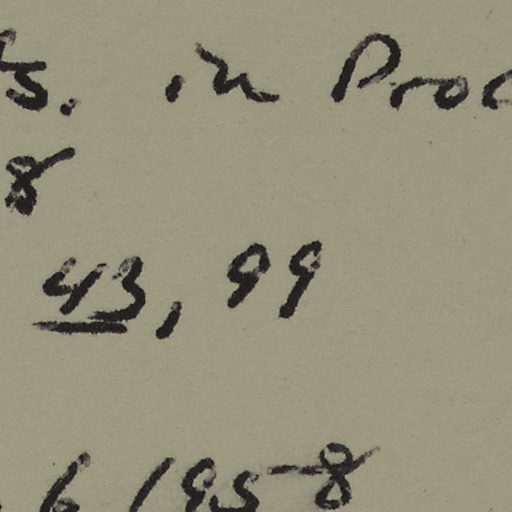 in Proc
8
43, 99
6 1958